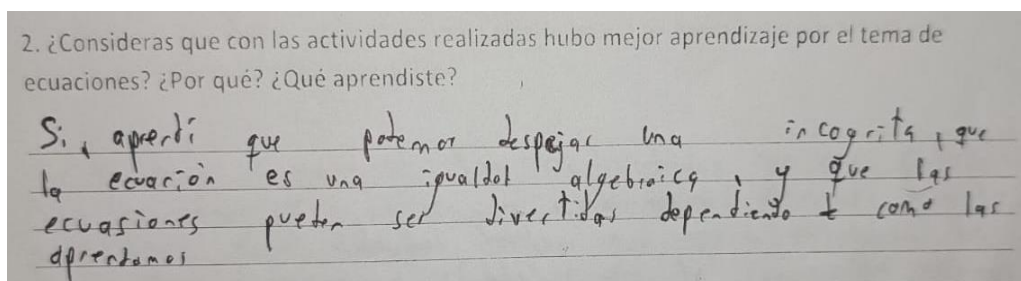 2. ¿Consideras que con las actividades realizadas hubo mejor aprendizaje por el tema de
ecuaciones? ¿Por qué? ¿Qué aprendiste?
Si, aprendi que potemos despejar una incognita, que
la ecuación es una igualdad algebraica, y que las
ecuasiones pueden ser divertidas dependiendo como las
aprendamos